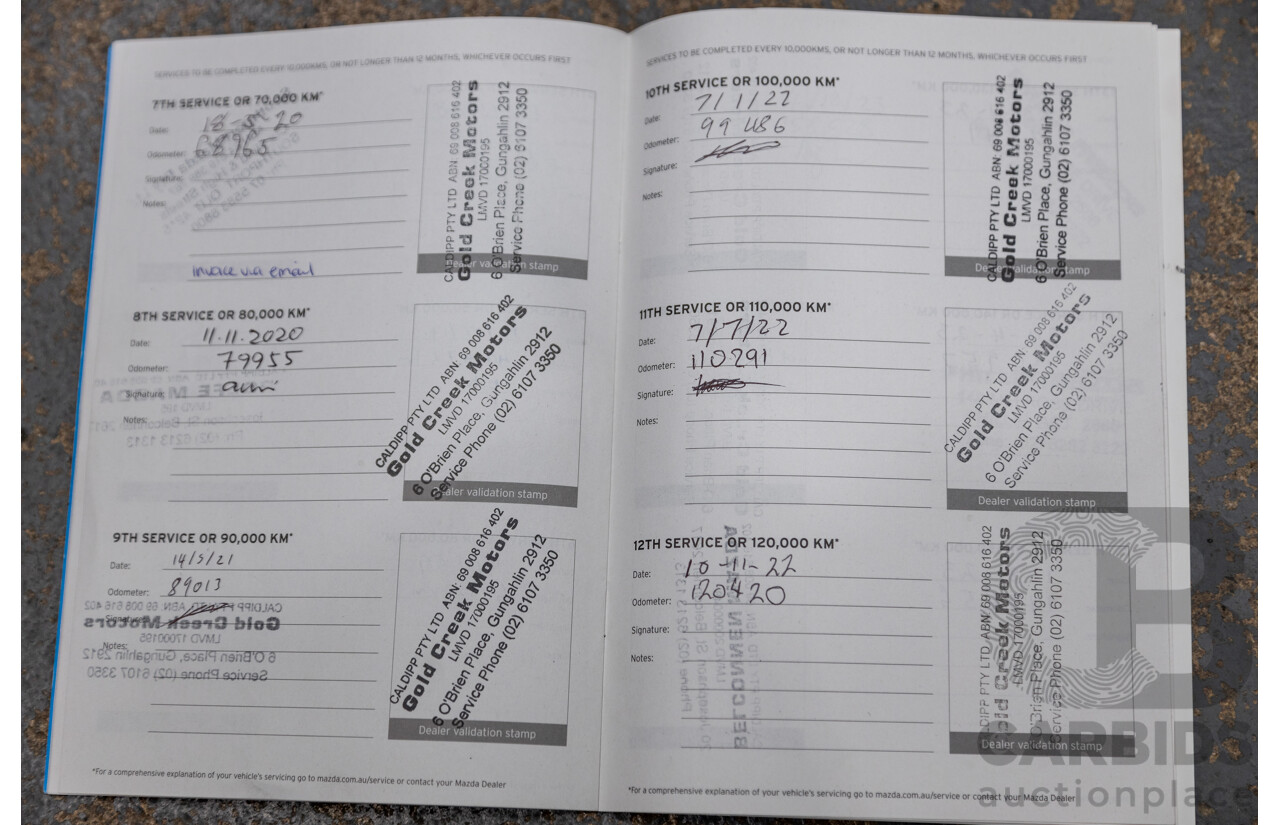 SERVICES TO BE COMPLETED EVERY 10,000KMS, OR NOT LONGER THAN 12 MONTHS, WHICHEVER OCCURS FIRST
7TH SERVICE OR 70,000 KM*
Date: 18-5-20
Odometer: 68965
Signature:
Notes:
invoice via email
CALDIPP PTY LTD ABN: 69 008 616 402
Gold Creek Motors
LMVD 17000195
6 O'Brien Place, Gungahlin 2912
Service Phone (02) 6107 3350
Dealer validation stamp
8TH SERVICE OR 80,000 KM*
Date: 11.11.2020
Odometer: 79955
Signature:
Notes:
CALDIPP PTY LTD ABN: 69 008 616 402
Gold Creek Motors
LMVD 17000195
6 O'Brien Place, Gungahlin 2912
Service Phone (02) 6107 3350
Dealer validation stamp
9TH SERVICE OR 90,000 KM*
Date: 14/5/21
Odometer: 89013
Signature:
Notes:
CALDIPP PTY LTD ABN: 69 008 616 402
Gold Creek Motors
LMVD 17000195
6 O'Brien Place, Gungahlin 2912
Service Phone (02) 6107 3350
Dealer validation stamp
*For a comprehensive explanation of your vehicle's servicing go to mazda.com.au/service or contact your Mazda Dealer
SERVICES TO BE COMPLETED EVERY 10,000KMS, OR NOT LONGER THAN 12 MONTHS, WHICHEVER OCCURS FIRST
10TH SERVICE OR 100,000 KM*
Date: 7/1/22
Odometer: 99486
Signature:
Notes:
CALDIPP PTY LTD ABN: 69 008 616 402
Gold Creek Motors
LMVD 17000195
6 O'Brien Place, Gungahlin 2912
Service Phone (02) 6107 3350
Dealer validation stamp
11TH SERVICE OR 110,000 KM*
Date: 7/7/22
Odometer: 110291
Signature:
Notes:
CALDIPP PTY LTD ABN: 69 008 616 402
Gold Creek Motors
LMVD 17000195
6 O'Brien Place, Gungahlin 2912
Service Phone (02) 6107 3350
Dealer validation stamp
12TH SERVICE OR 120,000 KM*
Date: 10-11-22
Odometer: 120420
Signature:
Notes:
CALDIPP PTY LTD ABN: 69 008 616 402
Gold Creek Motors
LMVD 17000195
O'Brien Place, Gungahlin 2912
Service Phone (02) 6107 3350
Dealer validation stamp
*For a comprehensive explanation of your vehicle's servicing go to mazda.com.au/service or contact your Mazda Dealer
CARBIDS
auctionplace